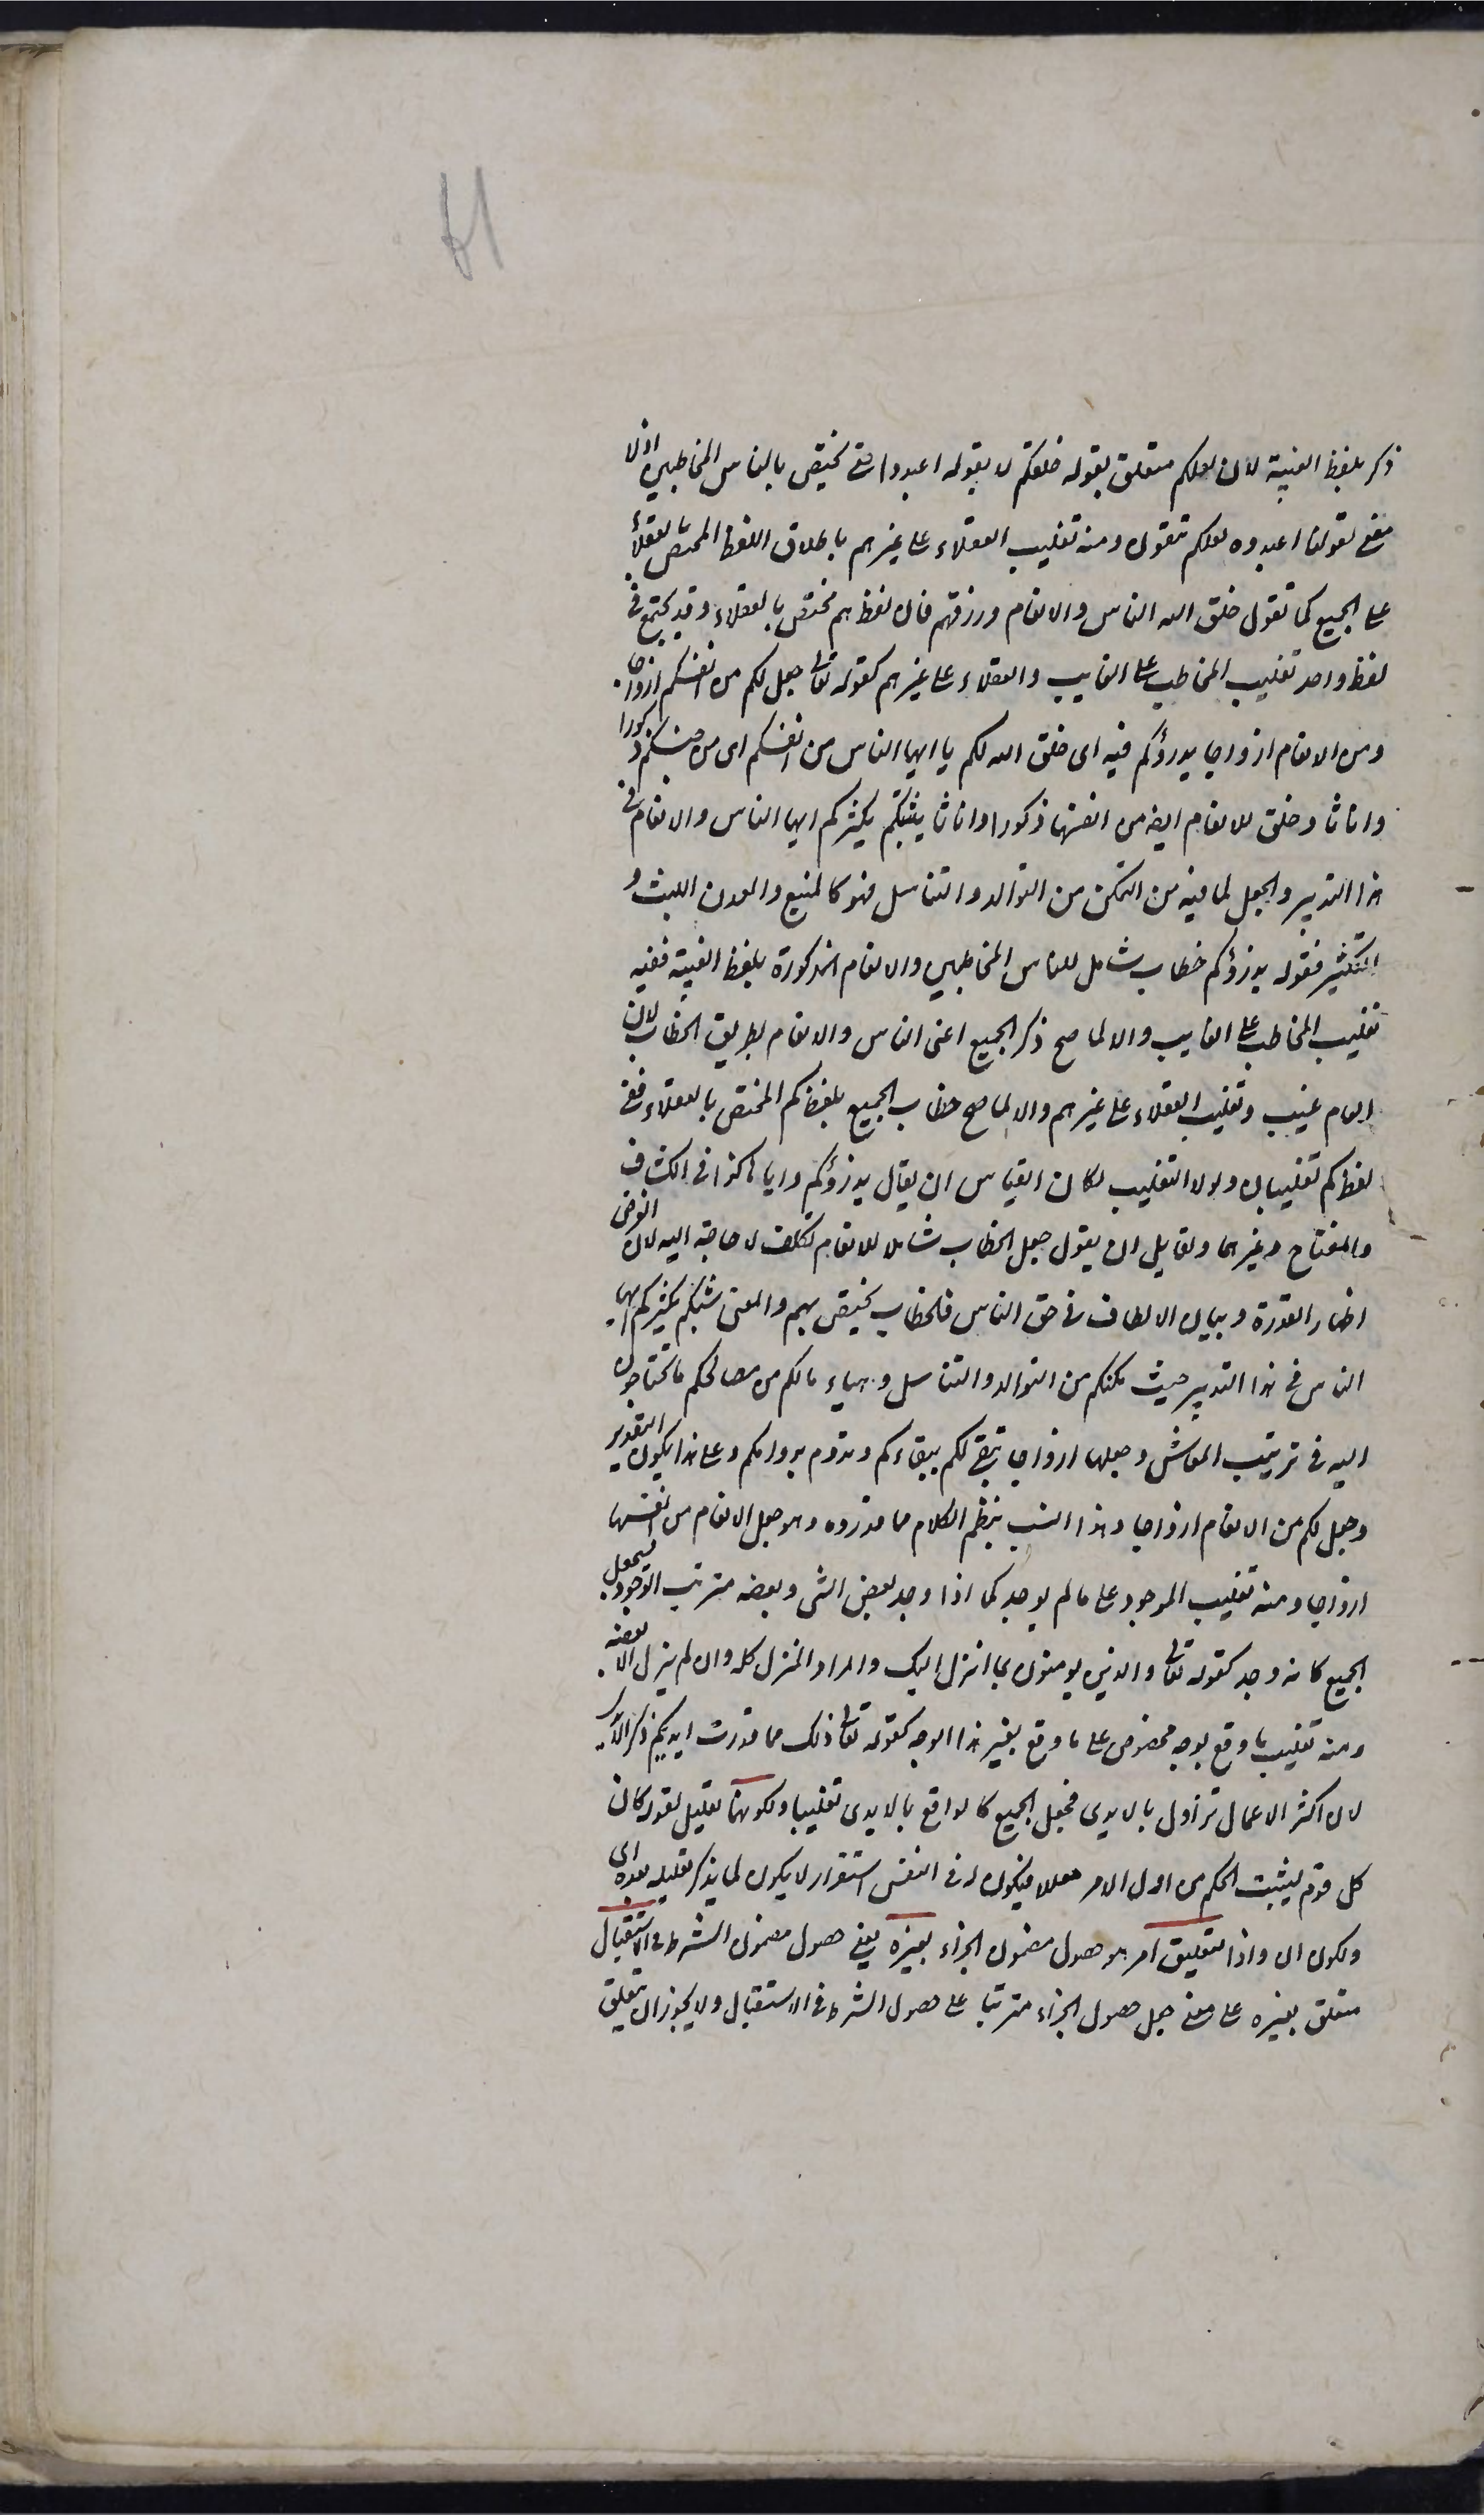 ذكر بلفظ الغيبة لان لعلكم متعلق بقوله خلقكم لا بقوله اعبدوا حتى يختص بالناس المخاطبين اذ لا
معنى لقولنا اعبدوه لعلكم تتقون ومنه تغليب العقلاء على غيرهم باطلاق اللفظ المختص بالعقلاء
على الجميع كما تقول خلق الله الناس والانعام ورزقهم فان لفظ هم مختص بالعقلاء وقد يجتمع في
لفظ واحد تغليب المخاطب على الغايب والعقلاء على غيرهم كقوله تعالى جعل لكم من انفسكم ازواجا
ومن الانعام ازواجا يذرؤكم فيه اى خلق الله لكم يا ايها الناس من انفسكم اى من جنسكم ذكورا
واناثا وخلق للانعام ايضا من انفسها ذكورا واناثا يبثكم يكثركم ايها الناس والانعام في
هذا التدبير والجعل لما فيه من التمكن من التوالد والتناسل فهو كالمنبع والمعدن للبث و
التكثير فقوله يذرؤكم خطاب شامل للناس المخاطبين والانعام المذكورة بلفظ الغيبة ففيه
تغليب المخاطب على الغايب والا لما صح ذكر الجميع اعنى الناس والانعام بطريق الخطاب لان
الانعام غيب وتغليب العقلاء على غيرهم والا لما صح خطاب الجميع بلفظ كم المختص بالعقلاء ففى
لفظ كم تغليبان ولولا التغليب لكان القياس ان يقال يذرؤكم واياها كذا في الكشاف
والمفتاح وغيرهما ولقايل ان يقول جعل الخطاب شاملا للانعام تكلف لا حاجة اليه لان الغرض
اظهار القدرة وبيان الالطاف في حق الناس فالخطاب يختص بهم والمعنى يبثكم يكثركم ايها
الناس في هذا التدبير حيث مكنكم من التوالد والتناسل وهياء لكم من مصالحكم ما تحتاجون
اليه في ترتيب المعاش وجعلها ازواجا تبقى لكم ببقاءكم وتدوم بدوامكم وعلى هذا يكون التقدير
وجعل لكم من الانعام ازواجا وهذا انسب بنظم الكلام مما قدروه وهو جعل الانعام من انفسها
ازواجا ومنه تغليب الموجود على ما لم يوجد كما اذا وجد بعض الشى وبعضه مترقب الوجود فيجعل
الجميع كانه وجد كقوله تعالى والذين يومنون بما انزل اليك والمراد المنزل كله وان لم ينزل الا بعضه
ومنه تغليب ما وقع بوجه مخصوص على ما وقع بغير هذا الوجه كقوله تعالى ذلك مما قدمت ايديكم ذكر الايدى
لان اكثر الاعمال تزاول بالايدى فجعل الجميع كالواقع بالايدى تغليبا ولكونهما تعليل لقوله كان
كل قدم ليثبت الحكم من اول الامر معللا فيكون له في النفس استقرار لا يكون لما يذكر تعليله بعده اى
ولكون ان واذا لتعليق امر هو حصول مضمون الجزاء بغيره يعنى حصول مضمون الشرط في الاستقبال
متعلق بغيره على معنى جعل حصول الجزاء مترتبا على حصول الشرط في الاستقبال ولا يجوز ان يتعلق